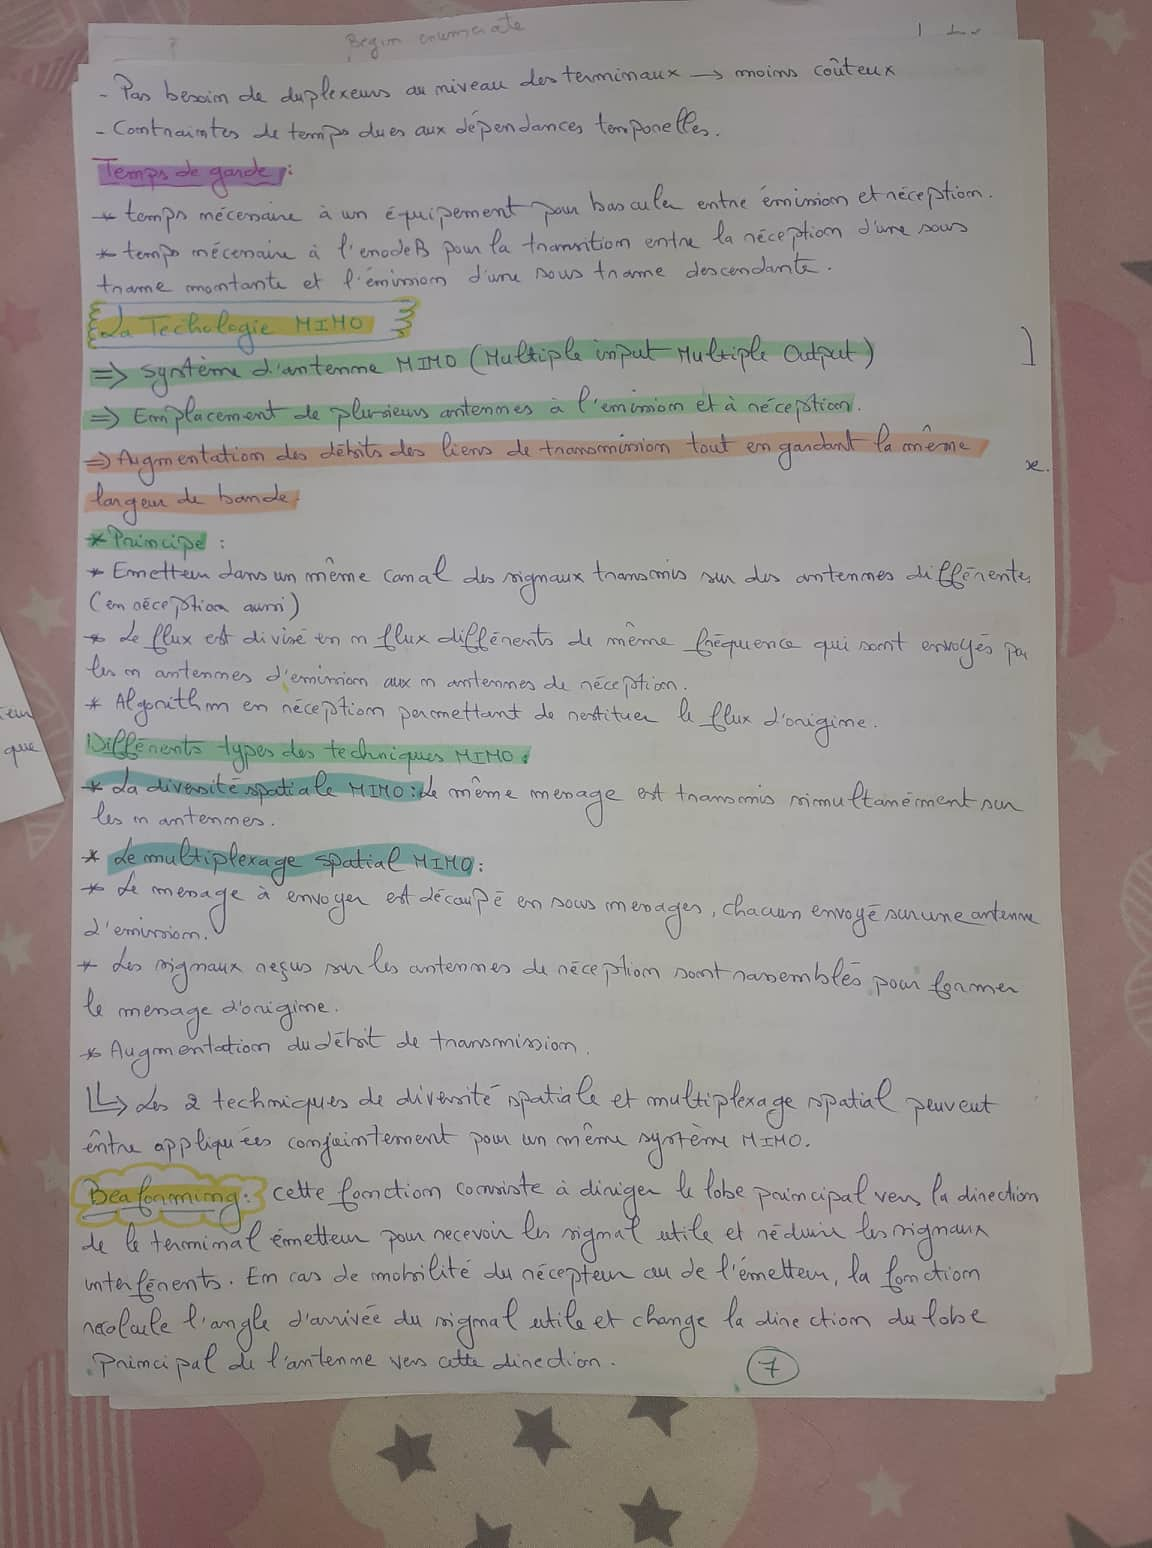 Begin enumerate
- Pas besoin de duplexeurs au niveau des terminaux → moins coûteux
- Contraintes de temps dues aux dépendances temporelles.
Temps de garde :
* temps nécessaire à un équipement pour basculer entre émission et réception.
* temps nécessaire à l'enodeB pour la transition entre la réception d'une sous
trame montante et l'émission d'une sous trame descendante.
La Techologie MIMO
⇒ système d'antenne MIMO (Multiple input Multiple Output)
⇒ Emplacement de plusieurs antennes à l'émission et à réception.
⇒ Augmentation des débits des liens de transmission tout en gardant la même
largeur de bande.
* Principe :
* Emetteur dans un même canal des signaux transmis sur des antennes différentes
(en réception aussi)
* Le flux est divisé en n flux différents de même fréquence qui sont envoyés par
les n antennes d'émission aux n antennes de réception.
* Algorithm en réception permettant de restituer le flux d'origine.
Différents types des techniques MIMO :
* La diversité spatiale MIMO : Le même message est transmis simultanément sur
les n antennes.
* Le multiplexage spatial MIMO :
* Le message à envoyer est découpé en sous messages, chacun envoyé sur une antenne
d'émission.
* Les signaux reçus sur les antennes de réception sont rassemblés pour former
le message d'origine.
* Augmentation du débit de transmission.
↳ Les 2 techniques de diversité spatiale et multiplexage spatial peuvent
être appliquées conjointement pour un même système MIMO.
Beaforming : cette fonction consiste à diriger le lobe principal vers la direction
de le terminal émetteur pour recevoir les signal utile et réduire les signaux
interférents. En cas de mobilité du récepteur ou de l'émetteur, la fonction
recalcule l'angle d'arrivée du signal utile et change la direction du lobe
principal de l'antenne vers cette direction.
7
que